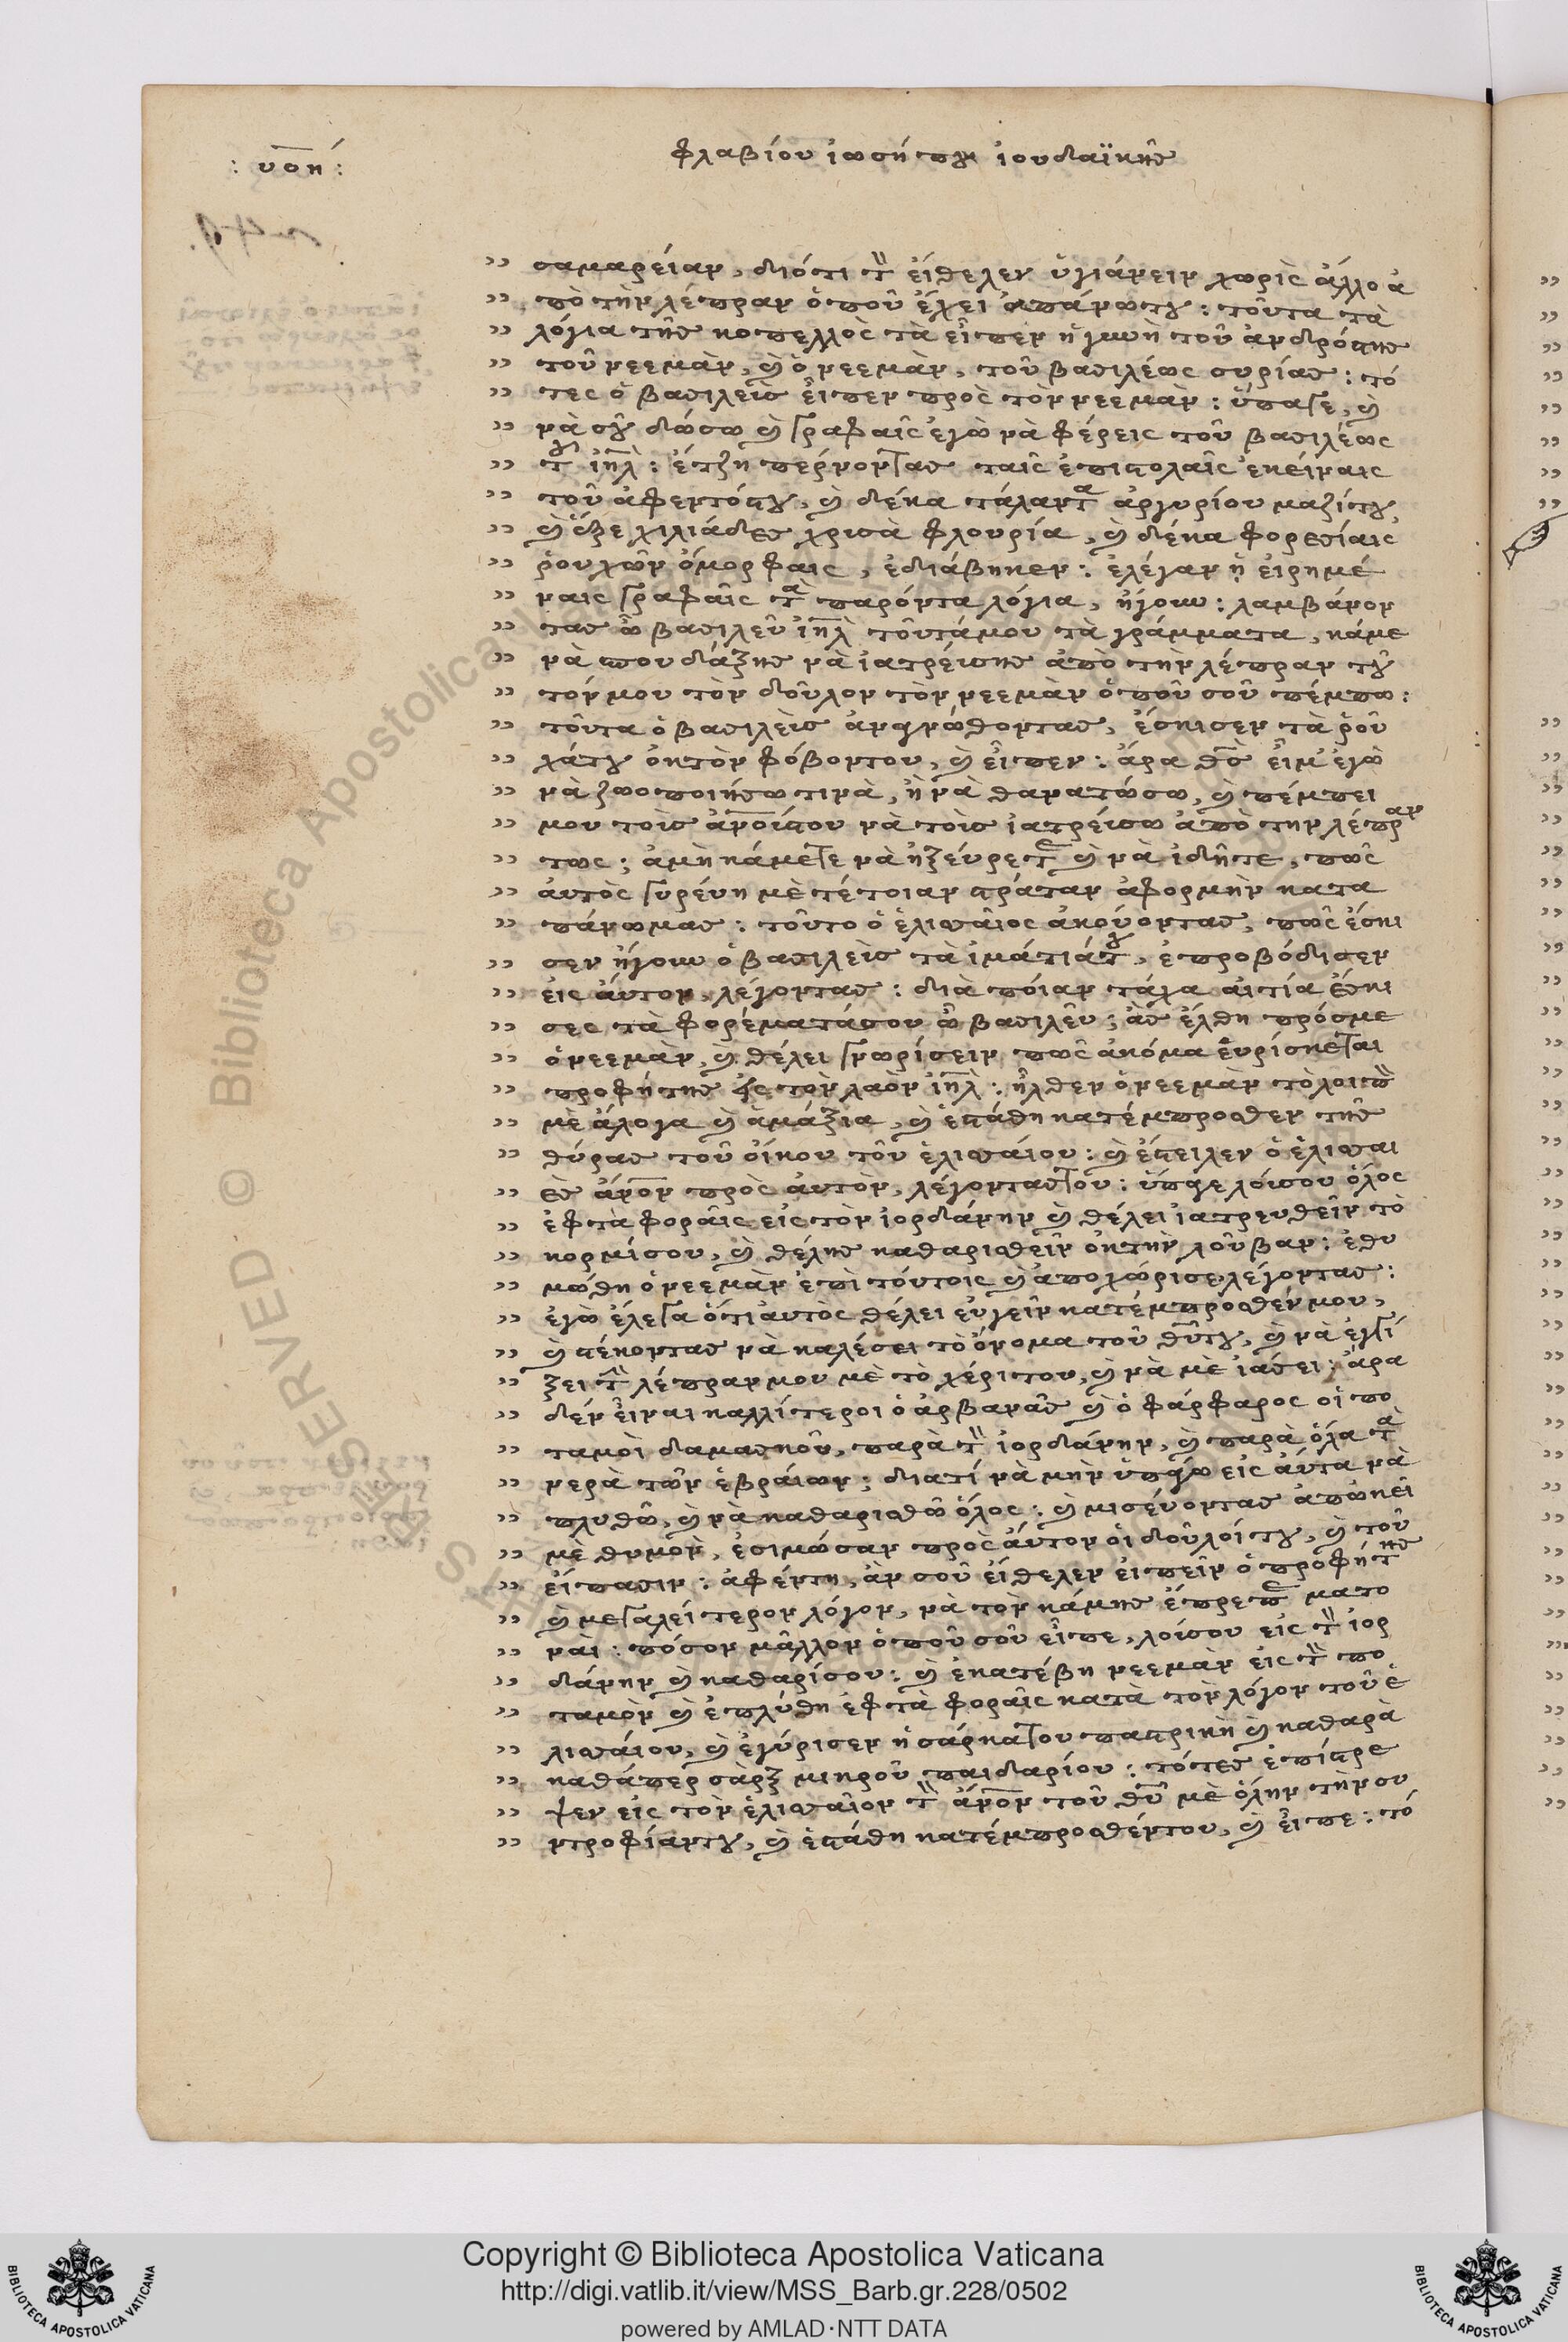 : υοη :
φλαβίου ἰωσήπου ἰουδαϊκῆς
σαμαρείαν, διότι τὸν εἴθελεν ὑγιάνειν χωρὶς ἄλλο ἀ
πὸ τὴν λέπραν ὁποῦ ἔχει ἀπάνωτου : τοῦτα τὰ
λόγια τῆς κοπελλὸς τὰ εἶπεν ἡ γυνὴ τοῦ ἀνδρότης
τοῦ νεεμὰν, καὶ ὁ νεεμὰν, τοῦ βασιλέως συρίας : τό
τες ὁ βασιλεὺς εἶπεν πρὸς τὸν νεεμὰν : ὕπαγε, καὶ
νὰ σοῦ δώσω καὶ γραφαῖς ἐγὼ νὰ φέρεις τοῦ βασιλέως
τοῦ ἰηλ̀ : ἔτζη πέρνονταςταῖς ἐπιστολαῖς ἐκείναις
τοῦ ἀφεντόστου, καὶ δέκα τάλαντα ἀργυρίου μαζίτου,
καὶ ἕξε χιλιάδες χρισὰ φλουρία, καὶ δέκα φορεσίαις
ῥουχῶν ὄμορφαις, ἐδιάβηκεν : ἐλέγαν ᾑ εἰρημέ
ναις γραφαῖς τὰ παρόντα λόγια, ἤγουν : λαμβάνον
τας ὦ βασιλεῦ ἰηλ̀ τοῦτάμου τὰ γράμματα, κάμε
νὰ σπουδάξης νὰ ἰατρεύσης ἀπὸ τὴν λέπραν τοῦ
τόνμου τὸν δοῦλον τὸν νεεμὰν ὁποῦ σοῦ πέμπω :
τοῦτα ὁ βασιλεὺς ἀναγνώθοντας, ἔσκισεν τὰ ῥοῦ
χάτου ὀκτὸν φόβοντου, καὶ εἶπεν : ἄρα θσ̀ εἶμ' ἐγὼ
νὰ ζωοποιήσω τινὰ, ἢ νὰ θανατώσω, καὶ πέμπει
μου τοὺς ἀνοίστου νὰ τοὺς ἰατρεύσω ἀπὸ τὴν λέπραν
τως ; ἀμὴ κάμετε νὰ ἠξεύρετε καὶ νὰ ἰδῆτε, πῶς
ἀυτὸς γυρέυη μὲ τέτοιαν στράταν ἀφορμὴν κατα
πάνωμας : τοῦτο ὁ ἐλισσαῖος ἀκούοντας, πῶς ἔσκι
σεν ἤγουν ὁ βασιλεὺς τὰ ἱμάτιάτου, ἐπροβόδισεν
εἰς ἄυτον, λέγοντας : διὰ ποίαν τάχα αἰτία ἔσκι
σες τὰ φορέματάσου ὦ βασιλεῦ ; ἂς ἔλθη πρόσμε
ὁ νεεμὰν, καὶ θέλει γνωρίσειν πῶς ἀκόμα ἑυρίσκεται
προφήτης εἰς τὸν λαὸν ἰηλ̀ : ἦλθεν ὁ νεεμὰν τὸ λοιπὸν
μὲ ἄλογα καὶ ἁμάξια, καὶ ἐστάθη κατέμπροσθεν τῆς
θύρας τοῦ οἴκου τοῦ ἐλισσαίου : καὶ ἔστειλεν ὁ ἐλισσαι
ὸς ἄνον πρὸς ἀυτὸν, λέγονταςτου : ὕπαγε λούσου ὅλος
ἐφτὰ φοραῖς εἰς τὸν ἰορδάνην καὶ θέλει ἰατρευθεῖν τὸ
κορμίσου, καὶ θέλης καθαρισθεῖν ὀκτὴν λοῦβαν : ἐθυ
μώθη ὁ νεεμὰν ἐπὶ τούτοις καὶ ἀποχώρισε λέγοντας :
ἐγὼ ἔλεγα ὅτι ἀυτὸς θέλει εὐγεῖν κατέμπροσθένμου,
καὶ στέκοντας νὰ καλέσει τὸ ὄνομα τοῦ θῦτου, καὶ νὰ ἐγγί
ξει τὴν λέπρανμου μὲ τὸ χέριτου, καὶ νὰ μὲ ἰάσει : ἄρα
δέν εἶναι καλλίτεροι ὁ ἀρβανᾶς καὶ ὁ φάρφαρος οἱ πο
ταμοὶ δαμασκοῦ, παρὰ τὸν ἰορδάνην, καὶ παρὰ ὅλα τὰ
νερὰ τῶν ἑβραίων ; διατί νὰ μὴν ὑπάγω εἰς ἀυτα νὰ
πλυθῶ, καὶ νὰ καθαρισθῶ ὅλος ; καὶ μισέυοντας ἀπῶκεῖ
μὲ θυμόν, ἐσιμώσαν πρὸς ἄυτον οἱ δοῦλοίτου, καὶ τοῦ
εἴπασιν : ἀφέντη, ἂν σοῦ εἴθελεν εἰπεῖν ὁ προφήτης
καὶ μεγαλείτερον λόγον, νὰ τὸν κάμης ἔπρεπε ματο
ναι : πόσον μᾶλλον ὁποῦ σοῦ εἶπε, λούσου εἰς τὸν ἰορ
δάνην καὶ καθαρίσου : καὶ ἐκατέβη νεεμὰν εἰς τὸν πο
ταμὸν καὶ ἐπλύθη ἐφτὰ φοραῖς κατὰ τὸν λόγον τοῦ ἐ
λισσαίου, καὶ ἐγύρισεν ἡ σάρκατου παστρικὴ καὶ καθαρὰ
καθάπερ σὰρξ μικροῦ παιδαρίου : τότες ἐπίστρε
ψεν εἰς τὸν ἐλισσαῖον τὸν ἄνον τοῦ θῦ μὲ ὅλην τὴν συ
ντροφίαντου, καὶ ἐστάθη κατέμπροσθέντου, καὶ εἶπε : τό
Copyright © Biblioteca Apostolica Vaticana
http://digi.vatlib.it/view/MSS_Barb.gr.228/0502
powered by AMLAD·NTT DATA